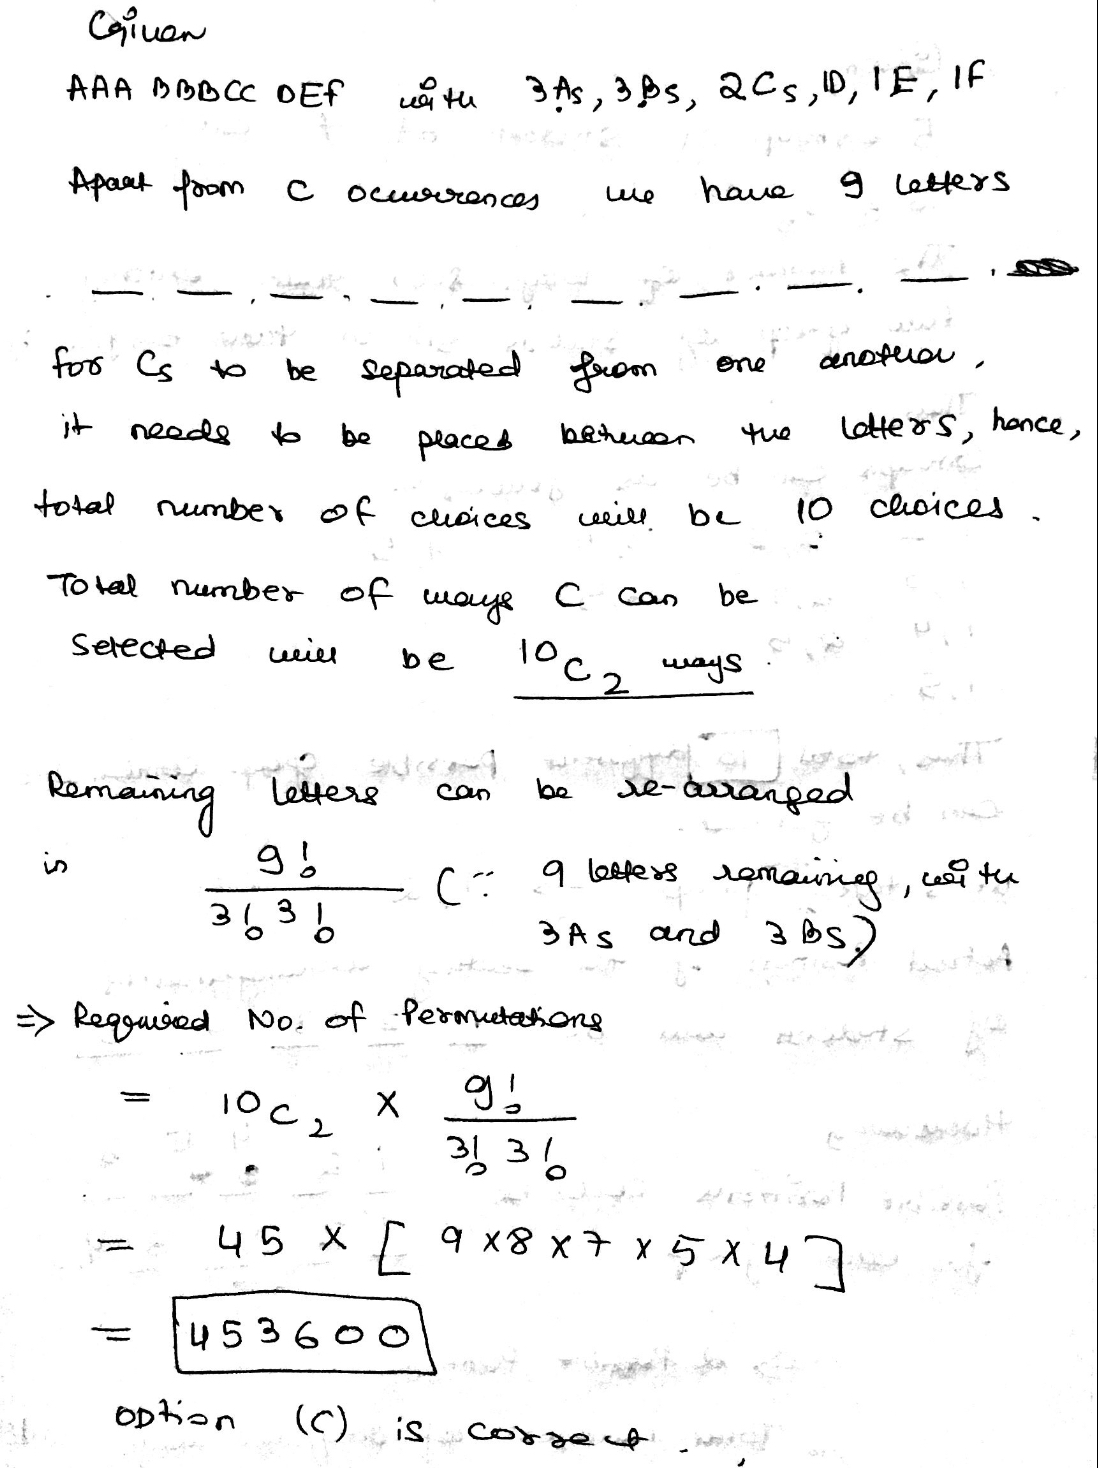 Given
AAA BBBCC DEF with 3As, 3Bs, 2Cs, 1D, 1E, 1F
Apart from C ocurrences we have 9 letters
for Cs to be separated from one another,
it needs to be placed between the letters, hence,
total number of choices will be 10 choices.
Total number of ways C can be
selected will be 10C2 ways
Remaining letters can be re-arranged
in 9!/3!3! (∵ 9 letters remaining, with
3As and 3Bs.)
=> Required No. of Permutations
= 10C2 x 9!/3!3!
= 45 x [9x8x7x5x4]
= 453600
option (C) is correct.